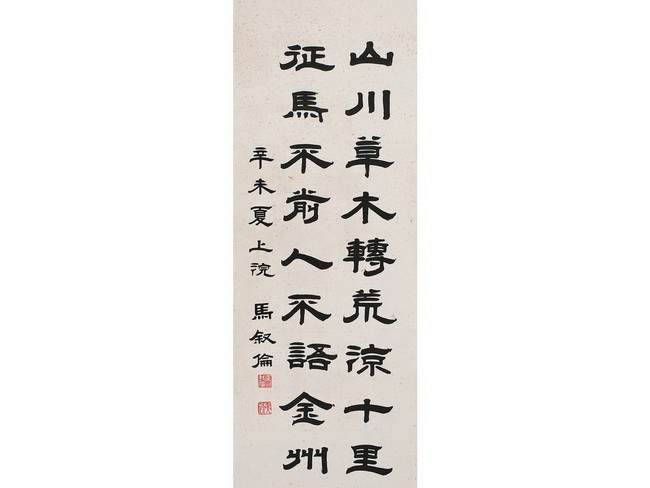 山川草木轉荒涼十里
征馬不前人不語金州
辛未夏上浣 馬叙倫